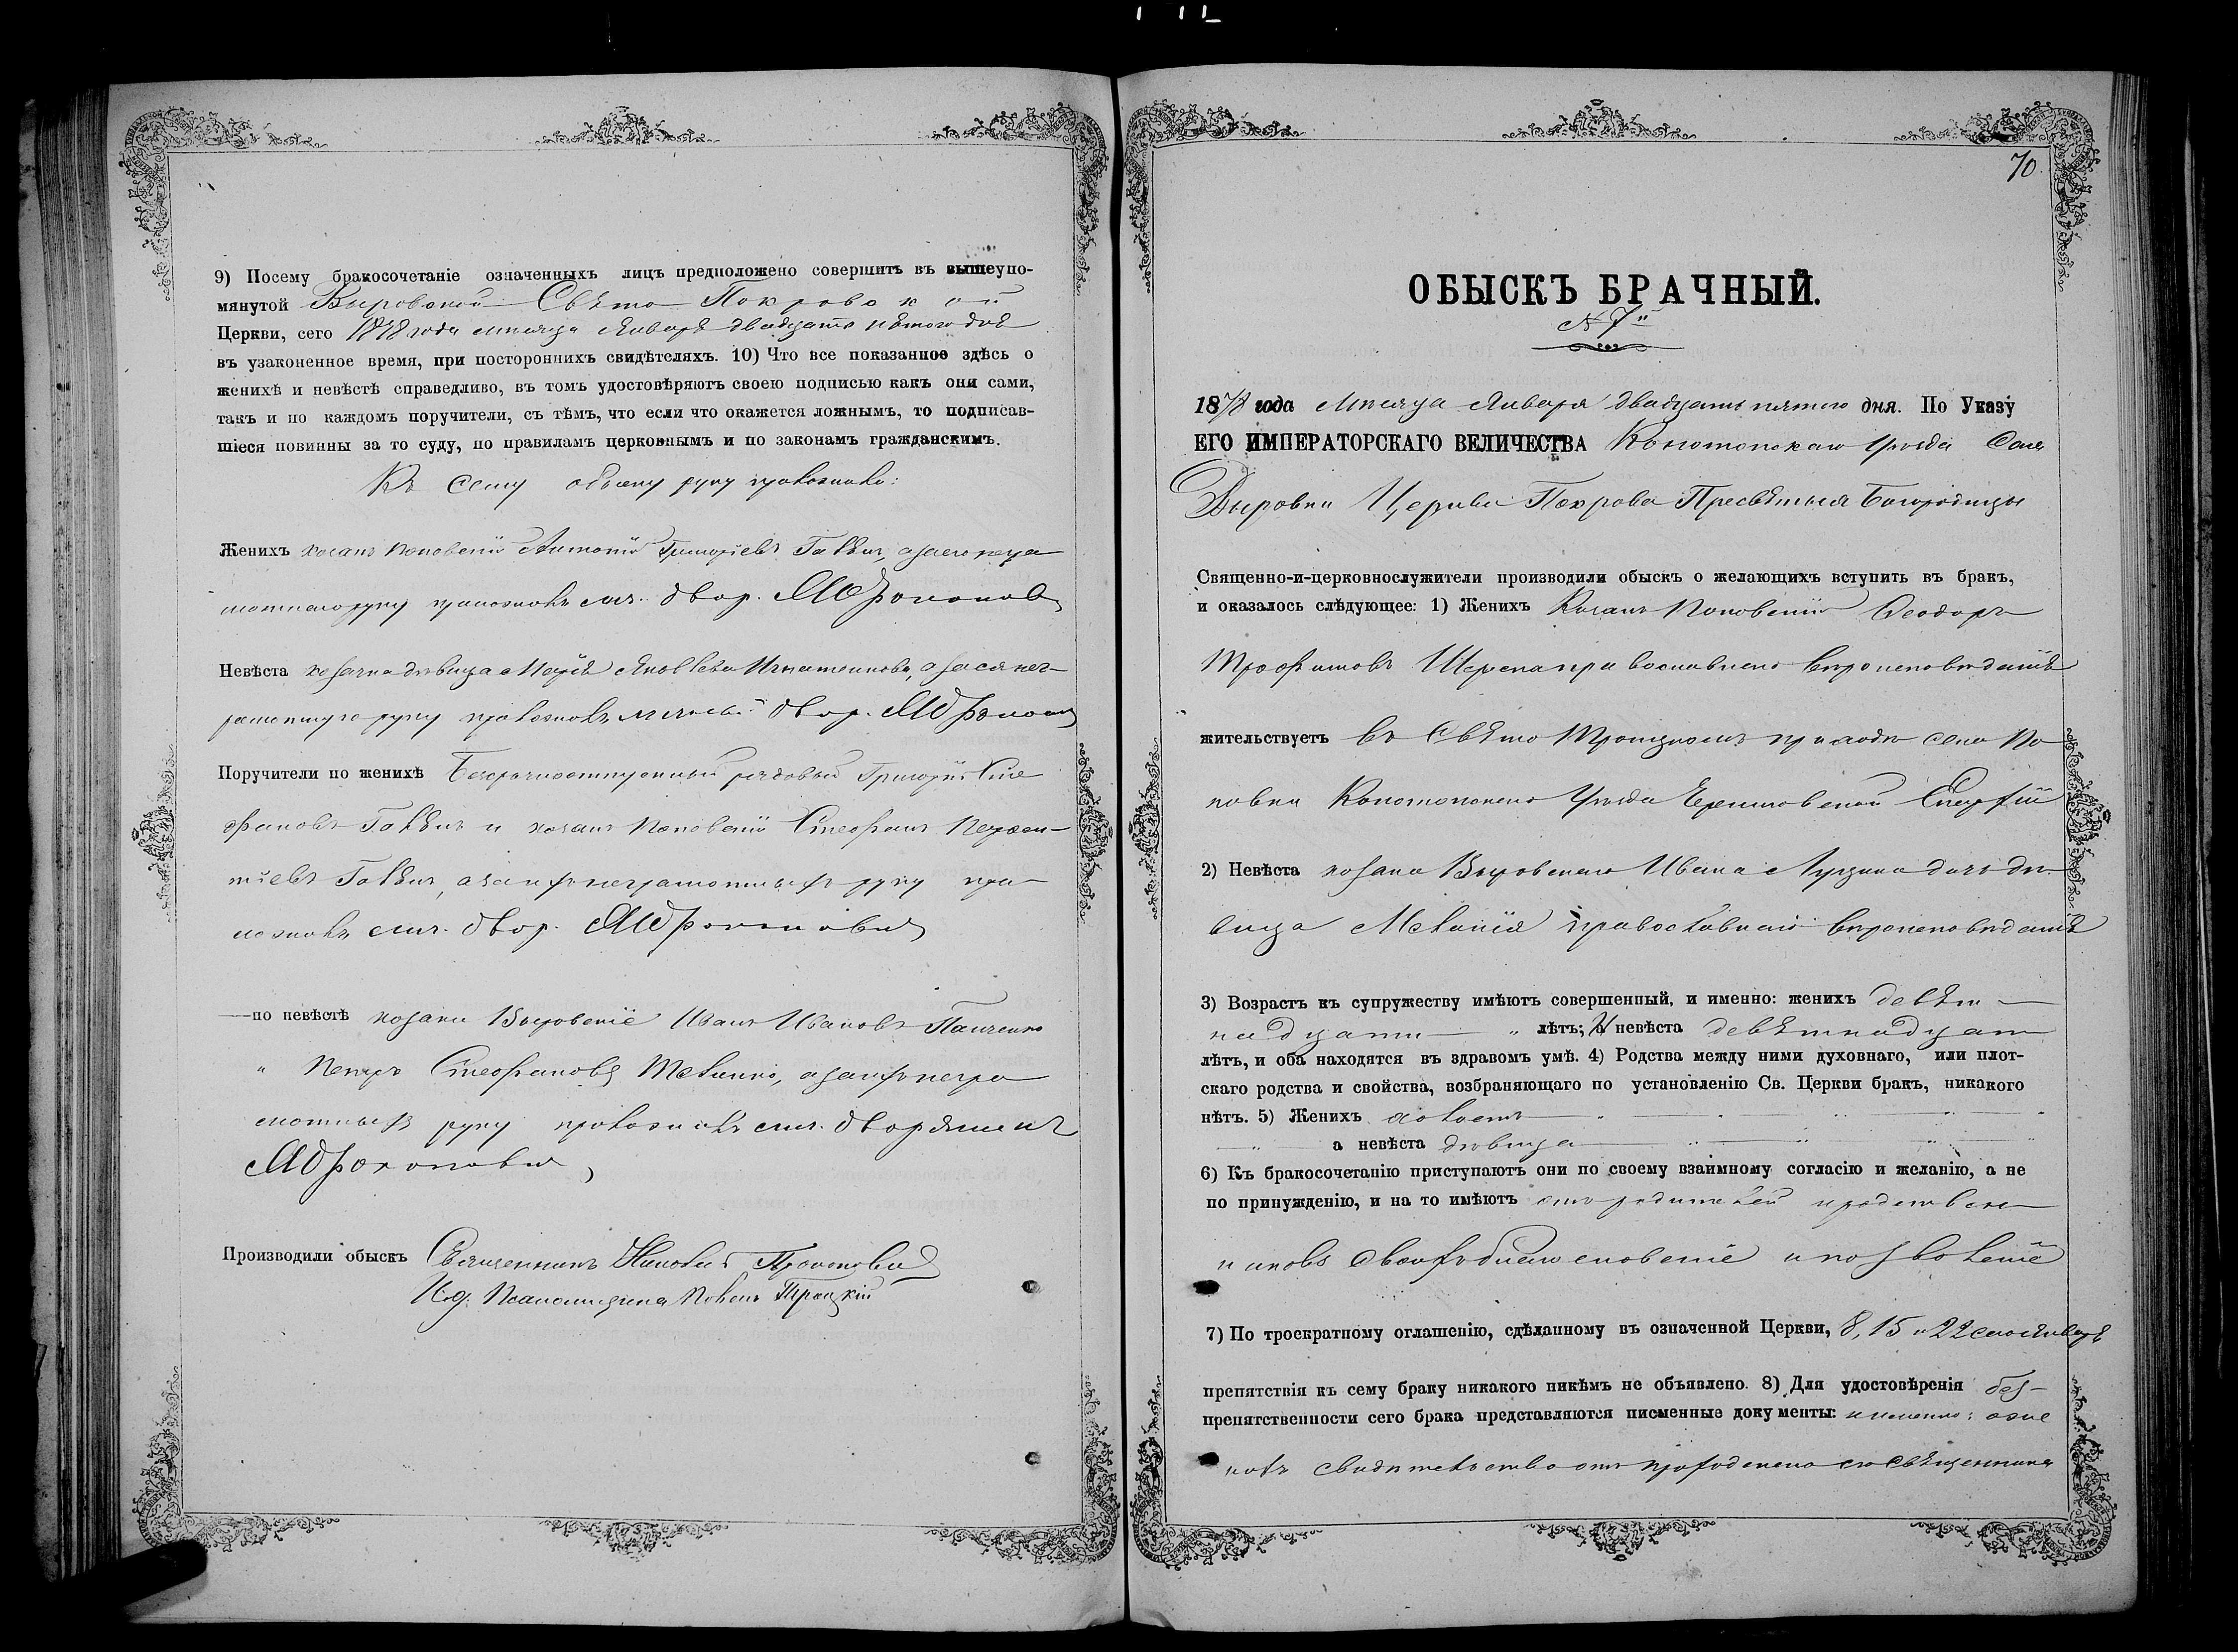 9) Посему бракосочетаніе означенныхъ лицъ предположено совершить въ вышеупо-
мянутой Выровской Свято Покровской
Церкви, сего 1878 года месяца Января двадцать пятого дня
въ узаконенное время, при постороннихъ свидѣтеляхъ. 10) Что все показанное здѣсь о
женихѣ и невѣстѣ справедливо, въ томъ удостовѣряютъ своею подписью какъ они сами,
такъ и по каждомъ поручители, съ тѣмъ, что если что окажется ложнымъ, то подписав-
шіеся повинны за то суду, по правиламъ церковнымъ и по законамъ гражданскимъ.
Къ сему обыску руку приложили:
Женихъ козакъ Поповскій Антоній Григоріевъ
руку приложилъ двор.
Невѣста дѣвица Марія Яковлева Игнатенкова, а за ея негра-
мотную руку приложилъ двор.
Поручители по женихѣ рядовый Григорій Сте
фановъ и козакъ Поповскій Стефанъ
тіевъ а за ихъ неграмотныхъ руку при
ложилъ двор.
—по невѣстѣ козаки Выровскіе Иванъ Ивановъ Панченко
" Петръ Стефановъ а за ихъ негра
мотныхъ руку приложилъ дворянинъ
Производили обыскъ Священникъ
И. д. Псаломщика Троцкій
70.
ОБЫСКЪ БРАЧНЫЙ.
№ 7й
1878 года Месяца Января двадцать пятого дня. По Указу
ЕГО ИМПЕРАТОРСКАГО ВЕЛИЧЕСТВА Конотопскаго Уѣзда Села
Выровки Церкви Покрова Пресвятыя Богородицы
Священно-и-церковнослужители производили обыскъ о желающихъ вступить въ бракъ,
и оказалось слѣдующее: 1) Женихъ Козакъ Поповскій Феодоръ
Трофимовъ православнаго вѣроисповѣданія
жительствуетъ въ Свято Троицкомъ приходѣ села По
повки Конотопскаго Уѣзда Черниговской Епархіи
2) Невѣста козака Выровскаго Ивана дочь дѣ-
вица Меланія православнаго вѣроисповѣданія
3) Возрастъ къ супружеству имѣютъ совершенный, и именно: женихъ девят —
надцати " лѣтъ; а невѣста девятнадцати
лѣтъ, и оба находятся въ здравомъ умѣ. 4) Родства между ними духовнаго, или плот-
скаго родства и свойства, возбраняющаго по установленію Св. Церкви бракъ, никакого
нѣтъ. 5) Женихъ холостъ
а невѣста дѣвица
6) Къ бракосочетанію приступаютъ они по своему взаимному согласію и желанію, а не
по принужденію, и на то имѣютъ отъ родителей и родствен-
никовъ своихъ благословеніе и позволеніе
7) По троекратному оглашенію, сдѣланному въ означенной Церкви, 8, 15 и 22 сего Января
препятствія къ сему браку никакого никѣмъ не объявлено. 8) Для удостовѣренія без-
препятственности сего брака представляются писменные документы: именно:
свидѣтельство отъ приходскаго его священника